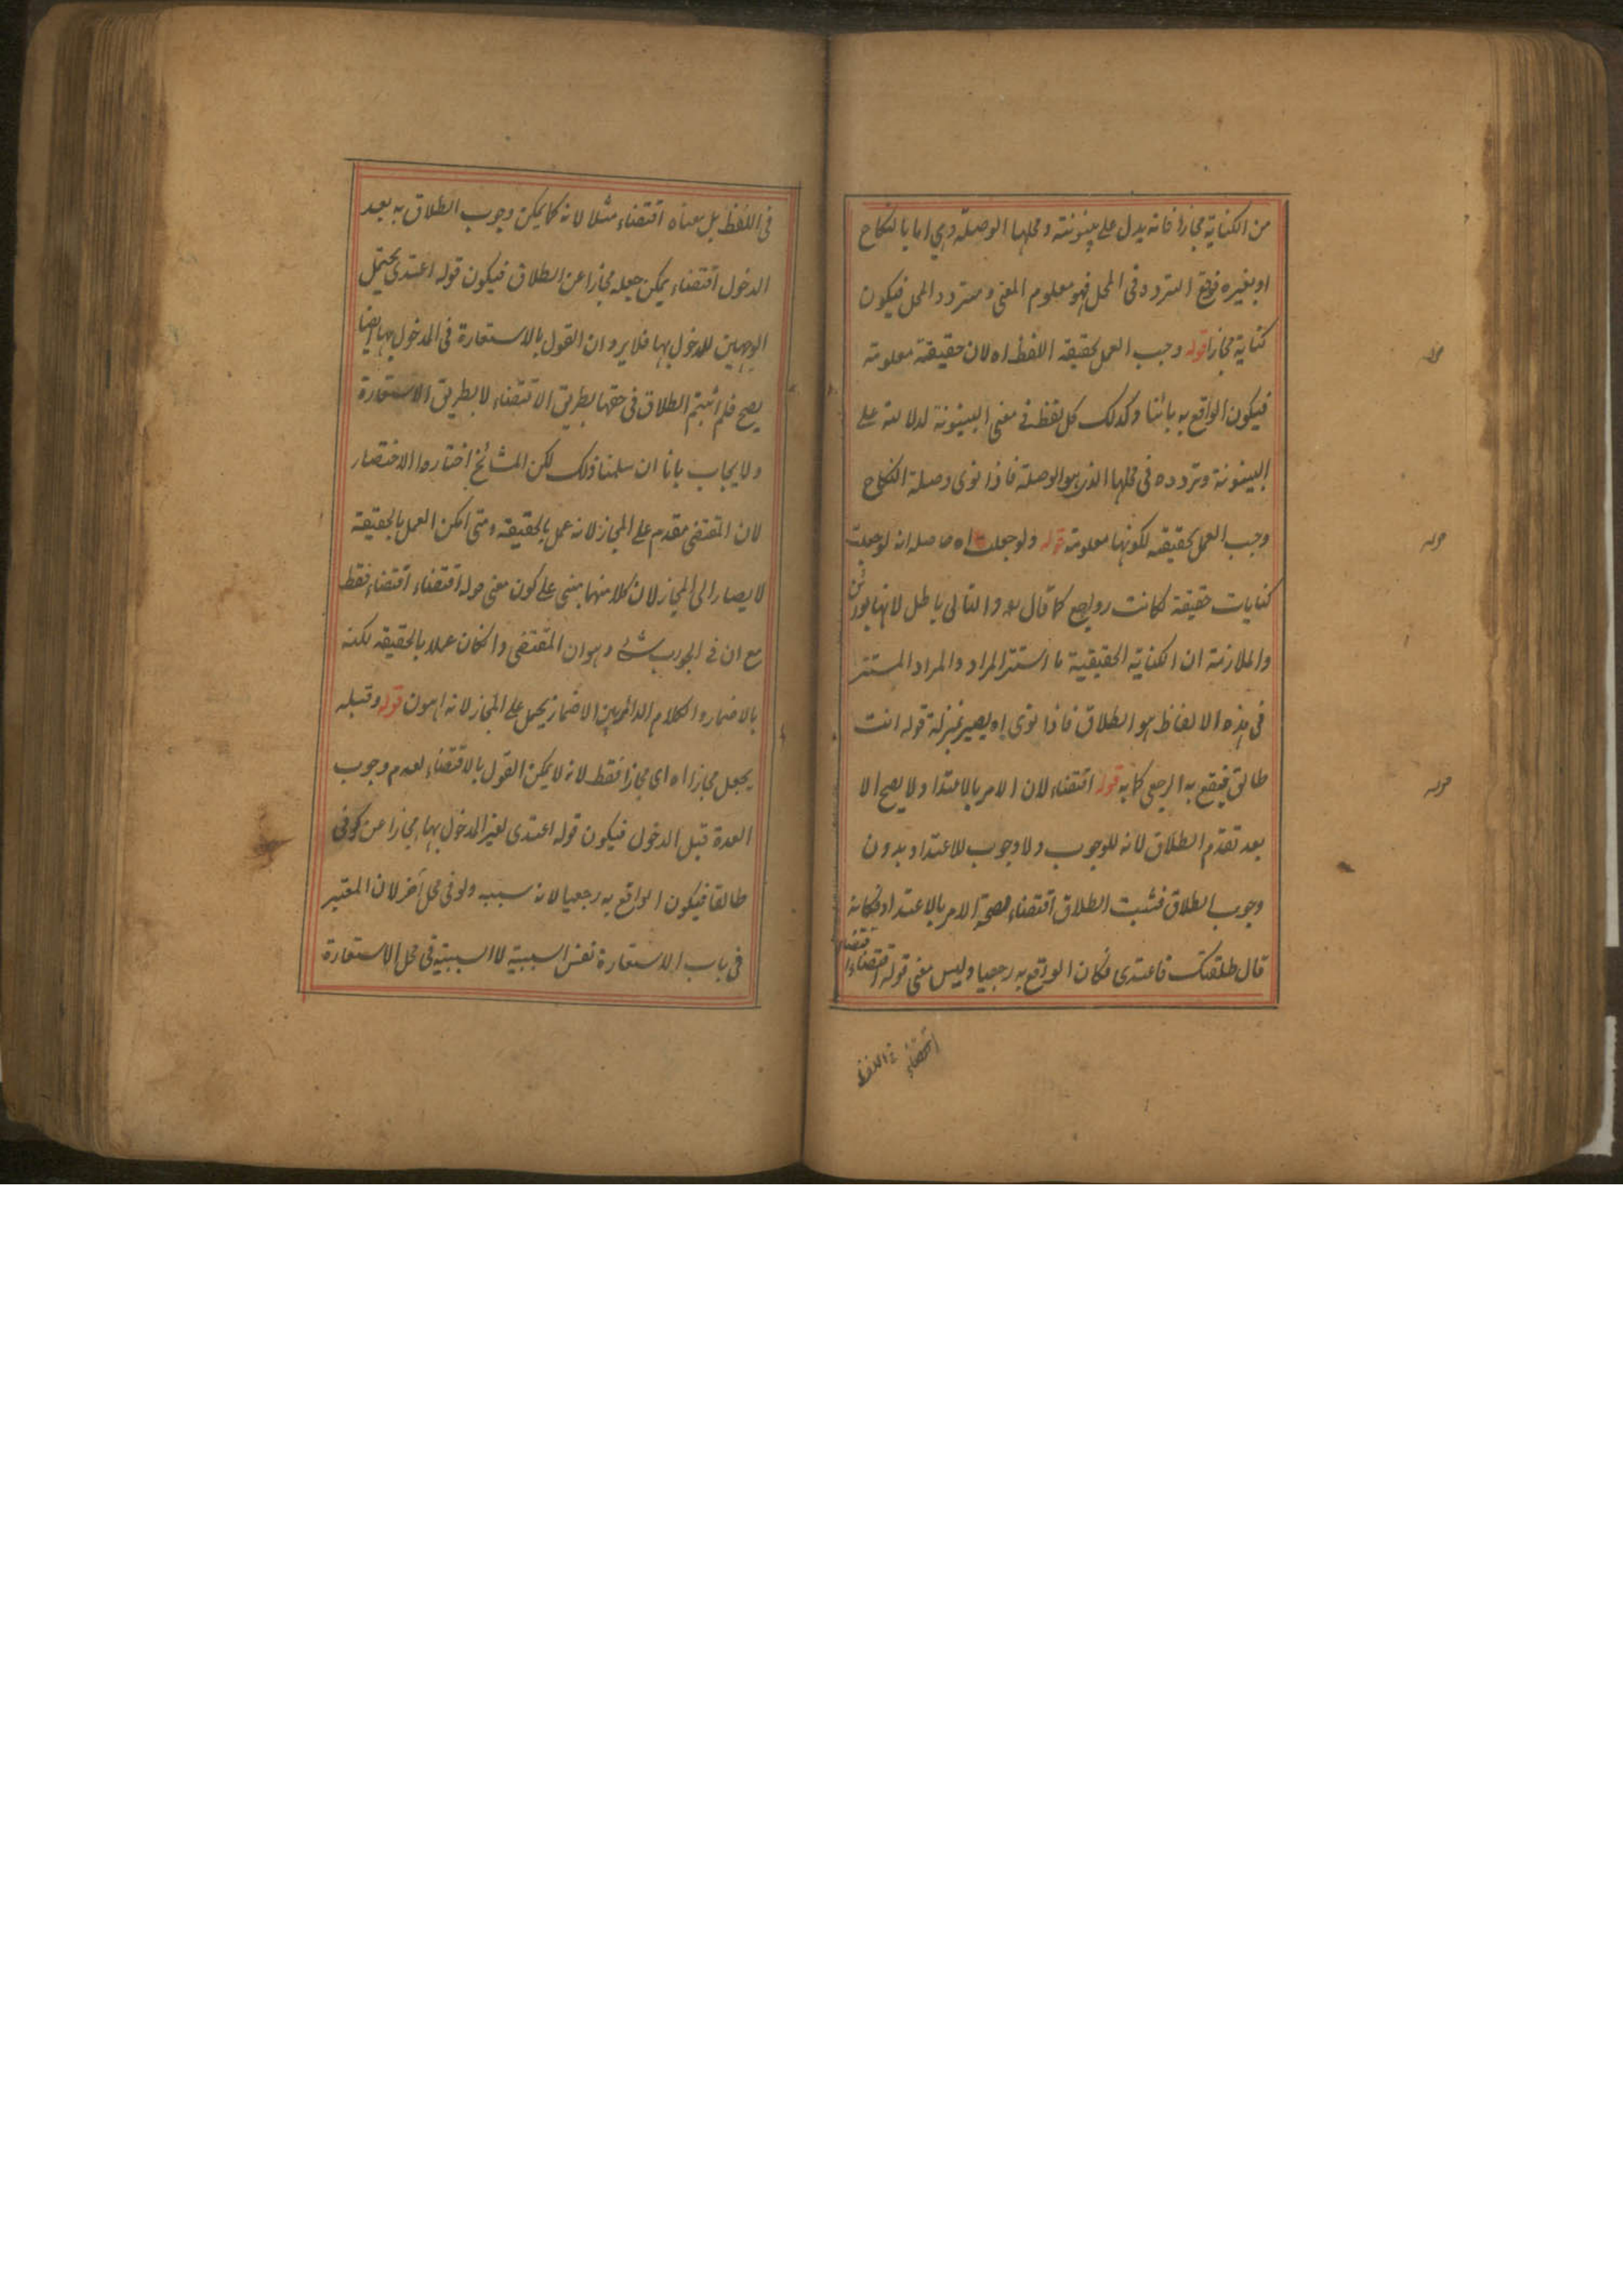 من الكناية مجازا فانه يدل على بينونته ومحلها الوصلة وهي اما بالنكاح
او بغيره فوقع التردد فى المحل فهو معلوم المعنى ومتردد المحل فيكون
كناية مجازا قوله وجب العمل بحقيقة اللفظ اه لان حقيقته معلومة
قوله
فيكون الواقع به بائنا وكذلك كل لفظ فى معنى البينونة لدلالته على
البينونة وتردده فى محلها الذى هو الوصلة فاذا نوى وصلة النكاح
وجب العمل بحقيقته لكونها معلومة قوله ولو جعلت اه حاصله انه لو جعلت
قوله
كنايات حقيقة لكانت رواجع كما قال والتالى باطل لانها بوائن
والملازمة ان الكناية الحقيقية ما استتر المراد والمراد المستتر
فى هذه الالفاظ هو الطلاق فاذا نوى اه يصير بمنزلة قوله انت
طالق فيقع به الرجعى كما به قوله اقتضاء لان الامر بالاعتداد لا يصح الا
قوله
بعد تقدم الطلاق لانه للوجوب ولا وجوب للاعتداد بدون
وجوب الطلاق فثبت الطلاق اقتضاء لصحة الامر بالاعتداد فكانه
قال طلقتك فاعتدى فكان الواقع به رجعيا وليس معنى قوله اقتضاء
اقتضاء
اقتضاء فى اللفظ
فى اللفظ بل معناه اقتضاء مثلا لانه كما يمكن وجوب الطلاق به بعد
الدخول اقتضاء يمكن جعله مجازا عن الطلاق فيكون قوله اعتدى يحتمل
الوجهين للمدخول بها فلا يرد ان القول بالاستعارة فى المدخول بها ايضا
يصح فلم اثبتم الطلاق فى حقها بطريق الاقتضاء لا بطريق الاستعارة
ولا يجاب بانا ان سلمنا ذلك لكن المشائخ اختاروا الاختصار
لان المقتضى مقدم على المجاز لانه عمل بالحقيقة ومتى امكن العمل بالحقيقة
لا يصار الى المجاز لان كلا منهما مبنى على كون معنى قوله اقتضاء اقتضاء فقط
مع ان فى الجواب شئ وهو ان المقتضى وان كان عملا بالحقيقة لكنه
بالاضمار والكلام الدائر بين الاضمار يحمل على المجاز لانه اهون قوله وقبله
يجعل مجازا اه اى مجازا فقط لانه لا يمكن القول بالاقتضاء لعدم وجوب
العدة قبل الدخول فيكون قوله اعتدى لغير المدخول بها مجازا عن كونى
طالقا فيكون الواقع به رجعيا لانه سببه ولو فى محل آخر لان المعتبر
فى باب الاستعارة نفس السببية لا السببية فى محل الاستعارة